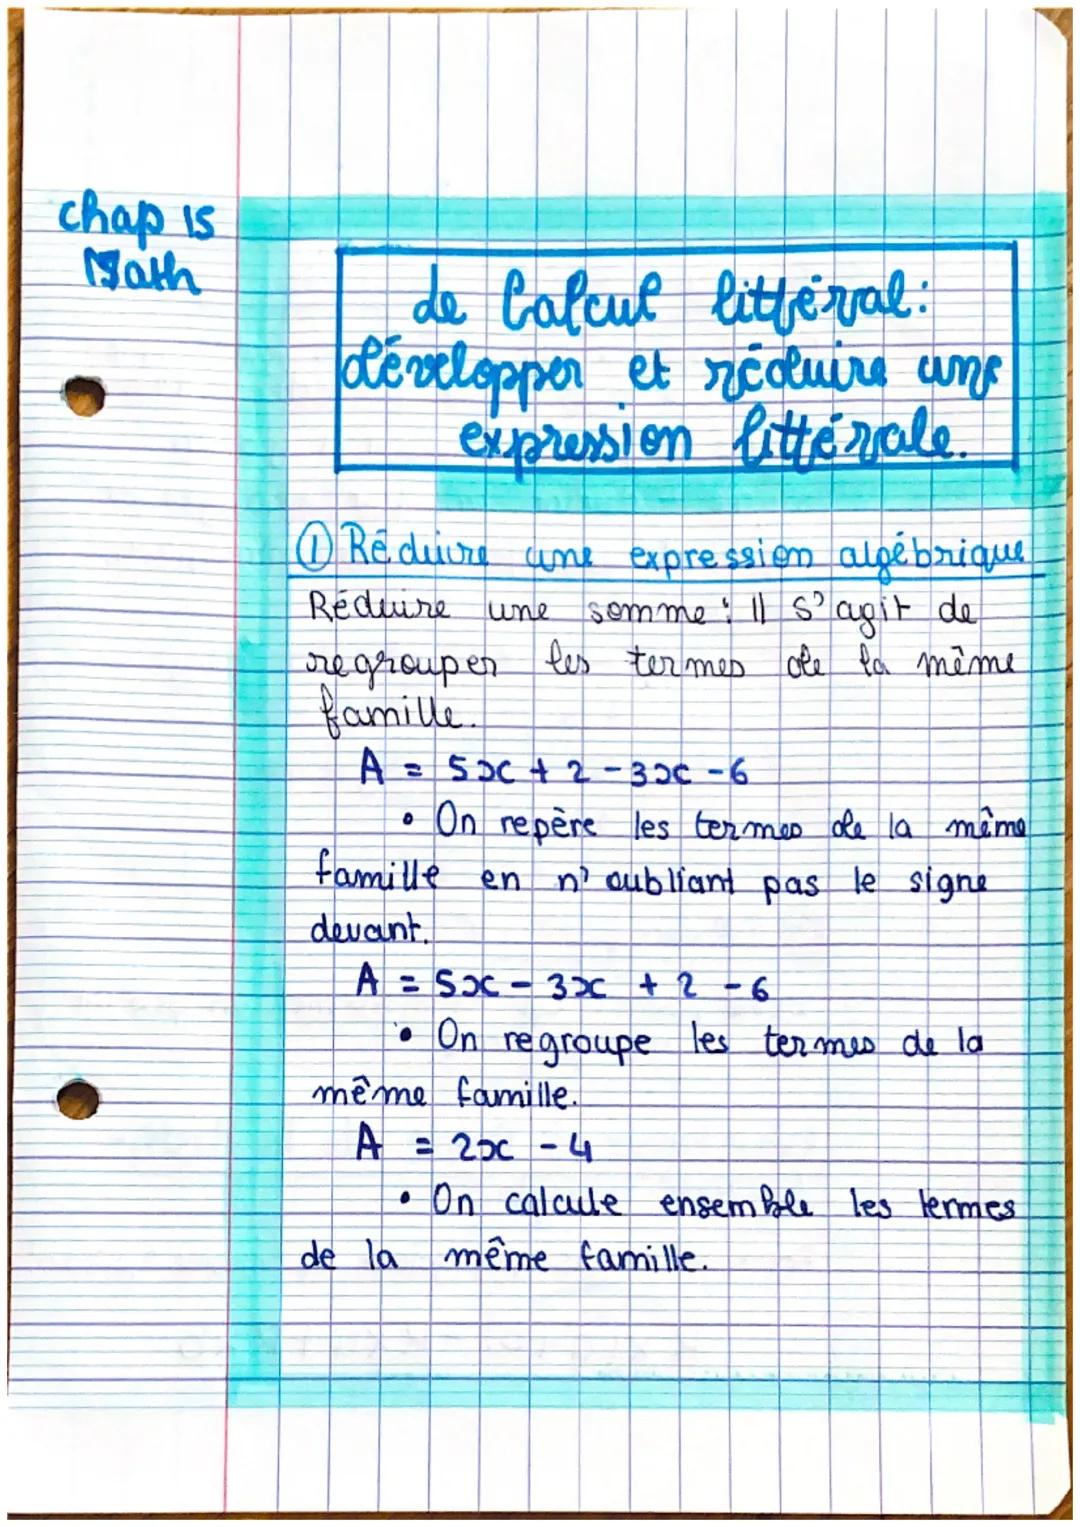 chap 15
Math
de Calcul littéral:
développer et réduire une
expression littérale.
① Réduire une expression algébrique
Réduire une somme : Il s'agit de
regrouper les termes de la même
famille.
A = 5x + 2 - 3x - 6
• On repère les termes de la même
famille en n'oubliant pas le signe
devant.
A = 5x - 3x + 2 - 6
• On regroupe les termes de la
même famille.
A = 2x - 4
• On calcule ensemble les termes
de la même famille.